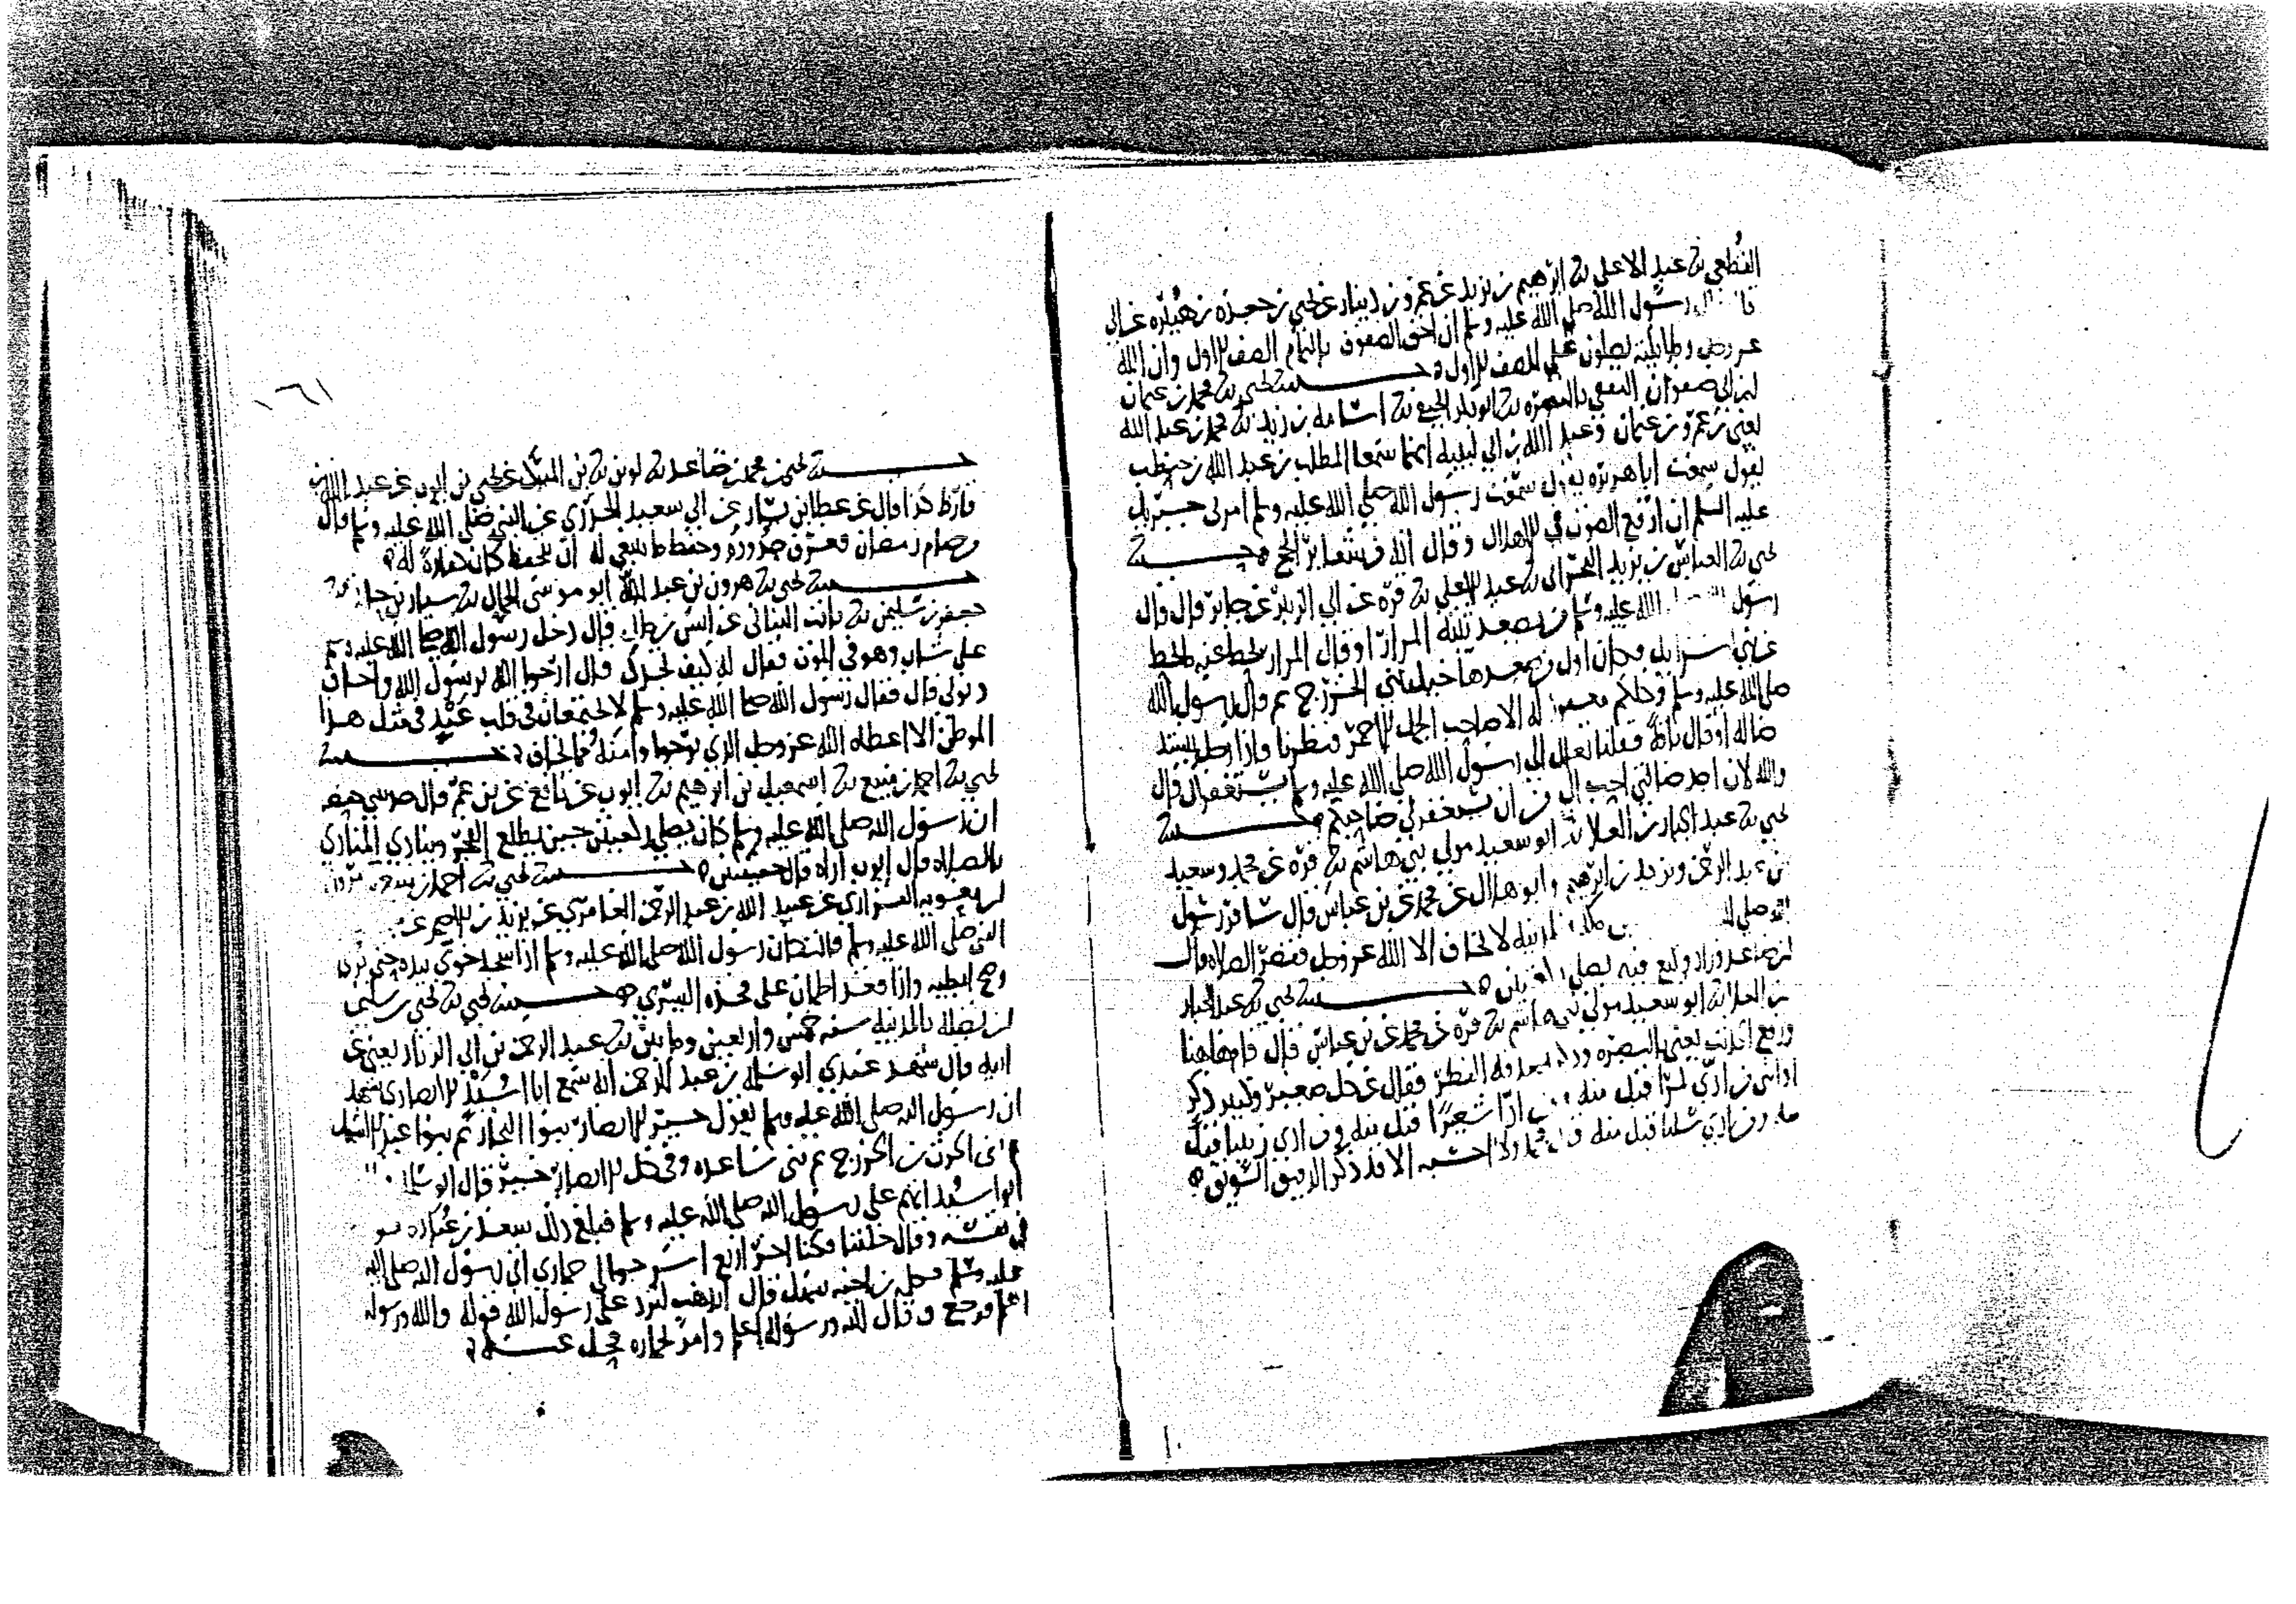 القطعي نا عبد الاعلى نا ابرهيم بن يزيد عن عمرو بن دينار عن يحيى بن جعدة بن هبيرة عن ابي
رسول الله صلى الله عليه وسلم ان احق الصفوف بالتمام الصف الاول وان الله
عز وجل وملائكته يصلون على الصف الاول حدثنا يحيى نا محمد بن عثمان
ابن ابي صفوان الثقفي بالبصرة نا ابو بكر الحنفي نا اسامة بن زيد نا محمد بن عبد الله
يعني بن عمرو بن عثمان وعبد الله بن ابي لبيبة انهما سمعا المطلب بن عبد الله بن حنطب
يقول سمعت ابا هريرة يقول سمعت رسول الله صلى الله عليه وسلم امرني جبريل
عليه السلم ان ارفع الصوت في الاهلال وقال انه من شعاير الحج حدثنا
يحيى نا العباس بن يزيد البحراني نا عبد الاعلى نا قرة عن ابي الزبير عن جابر قال قال
رسول الله عليه وسلم من يصعد ثنية المرار او قال المرار يحط عنه ما حط
عن بني اسرايل فكان اول من صعدها خيل بني الخزرج ثم قال رسول الله
صلى الله عليه وسلم وكلكم مغفور له الا صاحب الجمل الاحمر فنظرنا واذا رجل ينشد
ضالة او قال ناقة فقلنا تعال الى رسول الله صلى الله عليه وسلم يستغفر لك قال
والله لان اجد ضالتي احب الي من ان يستغفر لي صاحبكم حدثنا
يحيى نا عبد الجبار بن العلا نا ابو سعيد مولى بني هاشم نا قرة عن محمد وسعيد
بن عبد الرحمن ويزيد بن ابرهيم وابو هلال عن محمد عن بن عباس قال سافر رسول
الله صلى الله من مكة المدينة لا يخاف الا الله عز وجل فقصر الصلاة قال
يصلي ركعتين حدثنا يحيى نا عبد الجبار
بن العلا نا ابو سعيد مولى بني هاشم نا قرة عن محمد عن بن عباس قال قام هاهنا
يعني بالبصرة الفطر فقال عن كل صغير وكبير ذكر
او انثى من ادى تمرا قبل منه ومن ادى شعيرا قبل منه ومن ادى زبيبا قبل
منه ومن ادى سلتا قبل منه قال محمد ولا احسبه الا قد ذكر الدقيق السويق
١٦١
حدثنا يحيى بن محمد بن صاعد نا لوين نا بن المبارك عن يحيى بن ايوب عن عبد الله بن
قارظ كذا قال عن عطا بن يسار عن ابي سعيد الخدري عن النبي صلى الله عليه وسلم قال
من صام رمضان فعرف حدوده وحفظ ما ينبغي له ان يحفظ كان كفارة له
حدثنا يحيى نا هرون بن عبد الله ابو موسى الحمال نا سيار بن حاتم نا
جعفر بن سليمن نا ثابت البناني عن انس بن مالك قال دخل رسول الله صلى الله عليه وسلم
على شاب وهو في الموت فقال له كيف تجدك قال ارجوا الله يرسول الله واخاف
ذنوبي قال فقال رسول الله صلى الله عليه وسلم لا يجتمعان في قلب عبد في مثل هذا
الموطن الا اعطاه الله عز وجل الذي يرجوا وامنه مما يخاف حدثنا
يحيى نا احمد بن منيع نا اسمعيل بن ابرهيم نا ايوب عن نافع عن بن عمر قال حدثتني حفصة
ان رسول الله صلى الله عليه وسلم كان يصلي ركعتين حين يطلع الفجر وينادي المنادي
بالصلاة قال ايوب اراه قال خفيفتين حدثنا يحيى نا احمد بن منيع نا مروان
بن معوية الفزاري عن عبيد الله بن عبد الرحمن العامري عن يزيد بن الاصم عن
النبي صلى الله عليه وسلم قالت كان رسول الله صلى الله عليه وسلم اذا سجد خوى بيده حتى يرى
وضح ابطيه واذا قعد اطمان على فخذه اليسرى حدثنا يحيى نا يحيى بن سليمن
بن نضلة بالمدينة سنة خمس واربعين ومايتين نا عبد الرحمن بن ابي الزناد يعني عن
ابيه قال شهد عندي ابو سلمة بن عبد الرحمن انه سمع ابا اسيد الانصاري يشهد
ان رسول الله صلى الله عليه وسلم يقول خير الانصار بنوا النجار ثم بنوا عبد الاشهل
ثم بني الحرث بن الخزرج ثم بني ساعدة وفي كل الانصار خير قال ابو سلمة
ابوا اسيد اتهم على رسول الله صلى الله عليه وسلم فبلغ ذلك سعد بن عبادة
في نفسه وقال خلفنا فكنا اخر اربع اسرجوا لي حماري اتي رسول الله صلى الله
عليه وسلم بن اخيه سهل فقال اتذهب لترد على رسول الله قوله والله ورسوله
اعلم فرجع وقال الله ورسوله اعلم وامر بحماره فحل عنه